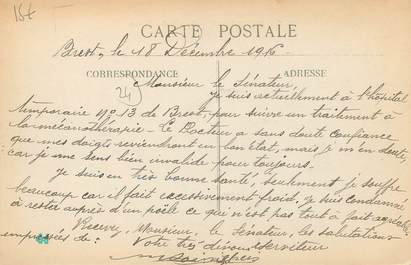 15f
CARTE POSTALE
Brest, le 18 Décembre 1916
CORRESPONDANCE
ADRESSE
Monsieur le Sénateur,
je suis actuellement à l'hôpital
temporaire no 13 de Brest, pour suivre un traitement à
la mécanothérapie - Le Docteur a sans doute confiance
que mes doigts reviendront en bon état, mais je m'en doute,
car je me sens bien invalide pour toujours.
Je suis en très bonne santé, seulement je souffre
beaucoup car il fait excessivement froid, je suis condamné
à rester auprès d'un poêle ce qui n'est pas tout à fait agréable
Recevez, Monsieur, le Sénateur, les salutations
empressées de:
Votre très dévoué serviteur